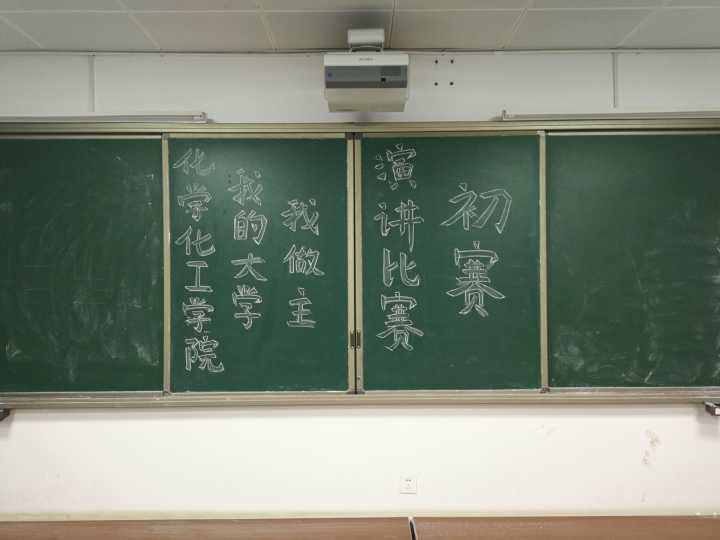 化学化工学院
我的大学
我做主
演讲比赛
初赛